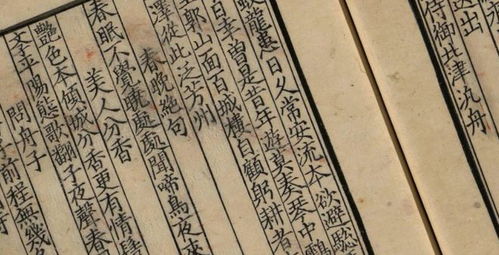 送出
侍御北津汎舟
龍愚日久常安流本欲避驄
日幸曾是昔年遊莫奏琴中
山面百城樓自顧躬耕者
澤從此泛芳州
春晚絕句
春眠不覺曉處處聞啼鳥夜來
美人分香
艷色本傾城分香更有情髻
平陽態歌翻子夜聲春
問舟子
前程無幾